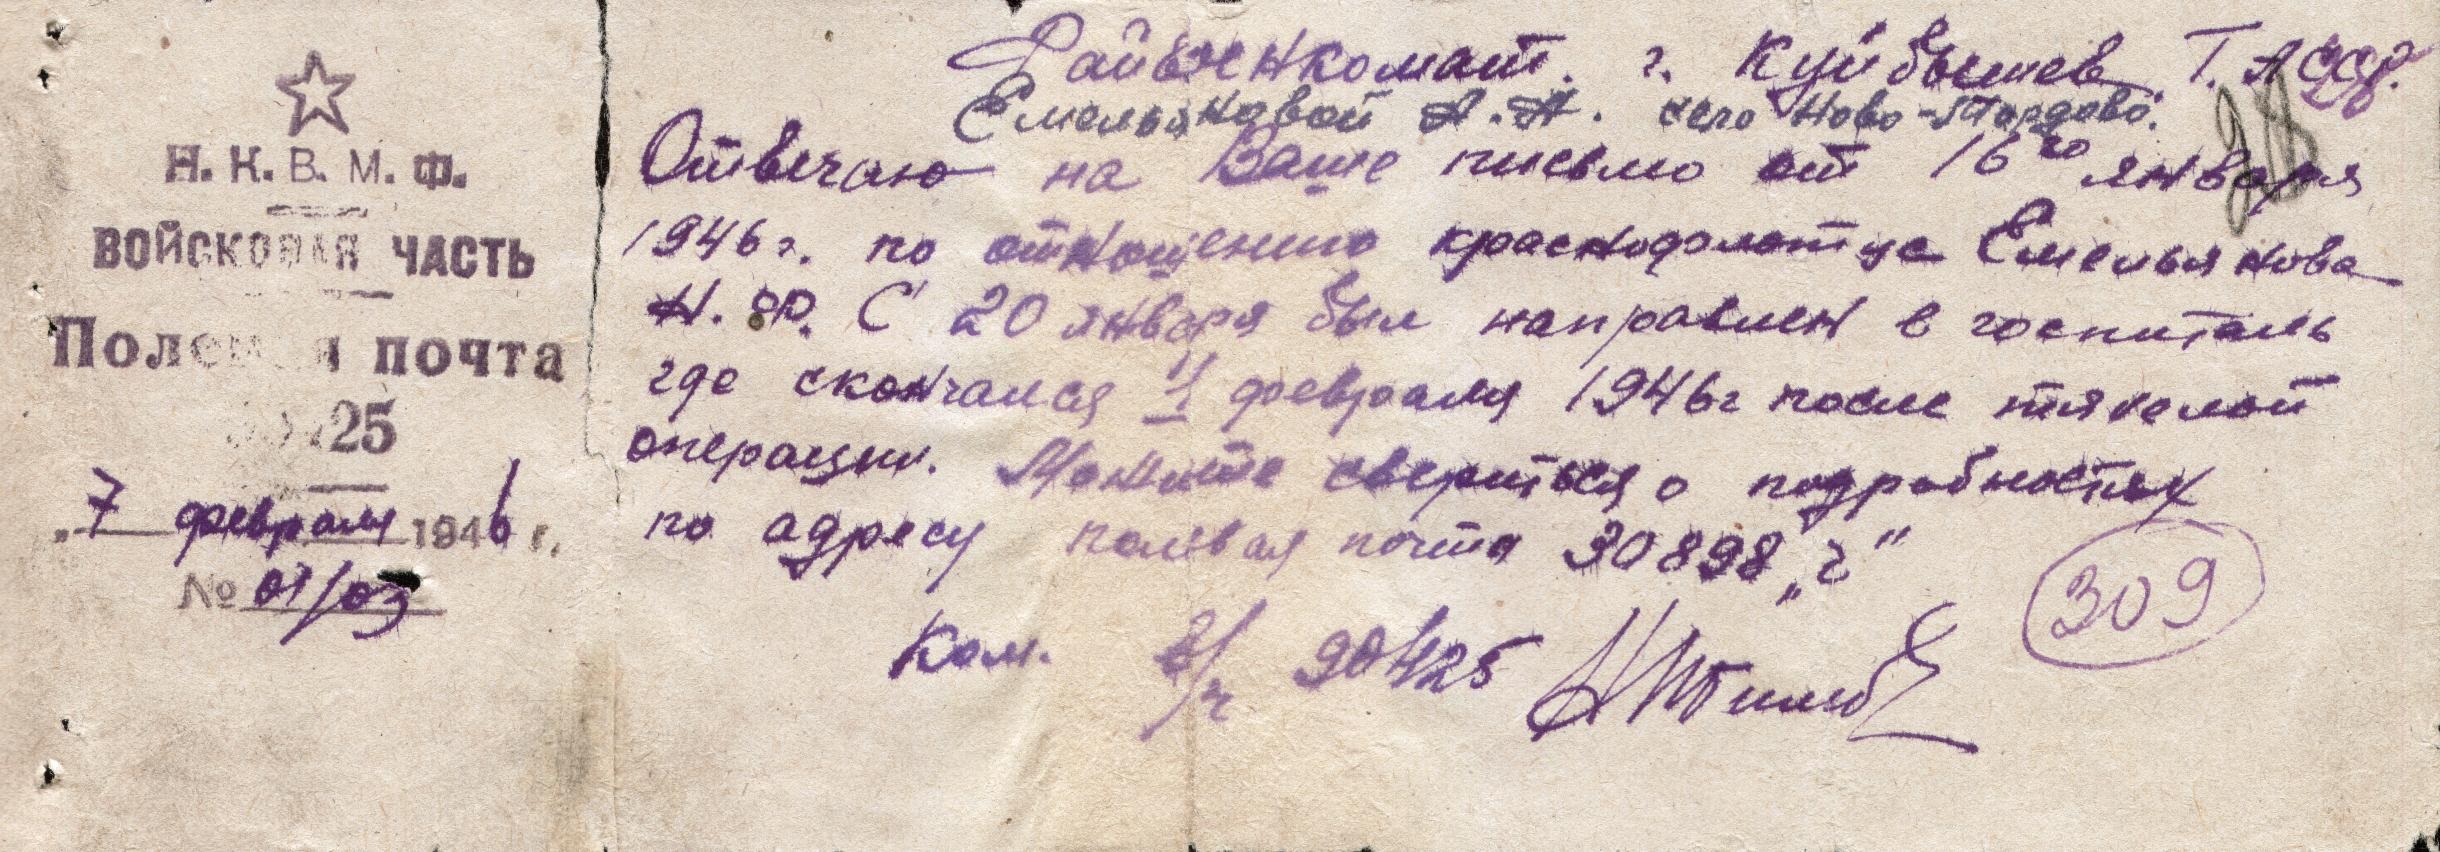 Н. К. В. М. Ф.
ВОЙСКОВАЯ ЧАСТЬ
Полевая почта
25
„7 февраля 1946 г.
№ 01/03
Райвоенкомат. г. Куйбышев. Т. АССР.
Емельяновой А. Н. село Ново-Мордово.
Отвечаю на Ваше письмо от 16го января
1946 г. по отношению краснофлотца Емельянова
Н. Ф. С 20 января был направлен в госпиталь
где скончался 1 февраля 1946г после тяжелой
операции. Можите свериться о подробностях
по адресу полевая почта 30898 „г"
309
Ком. в/ч 90425